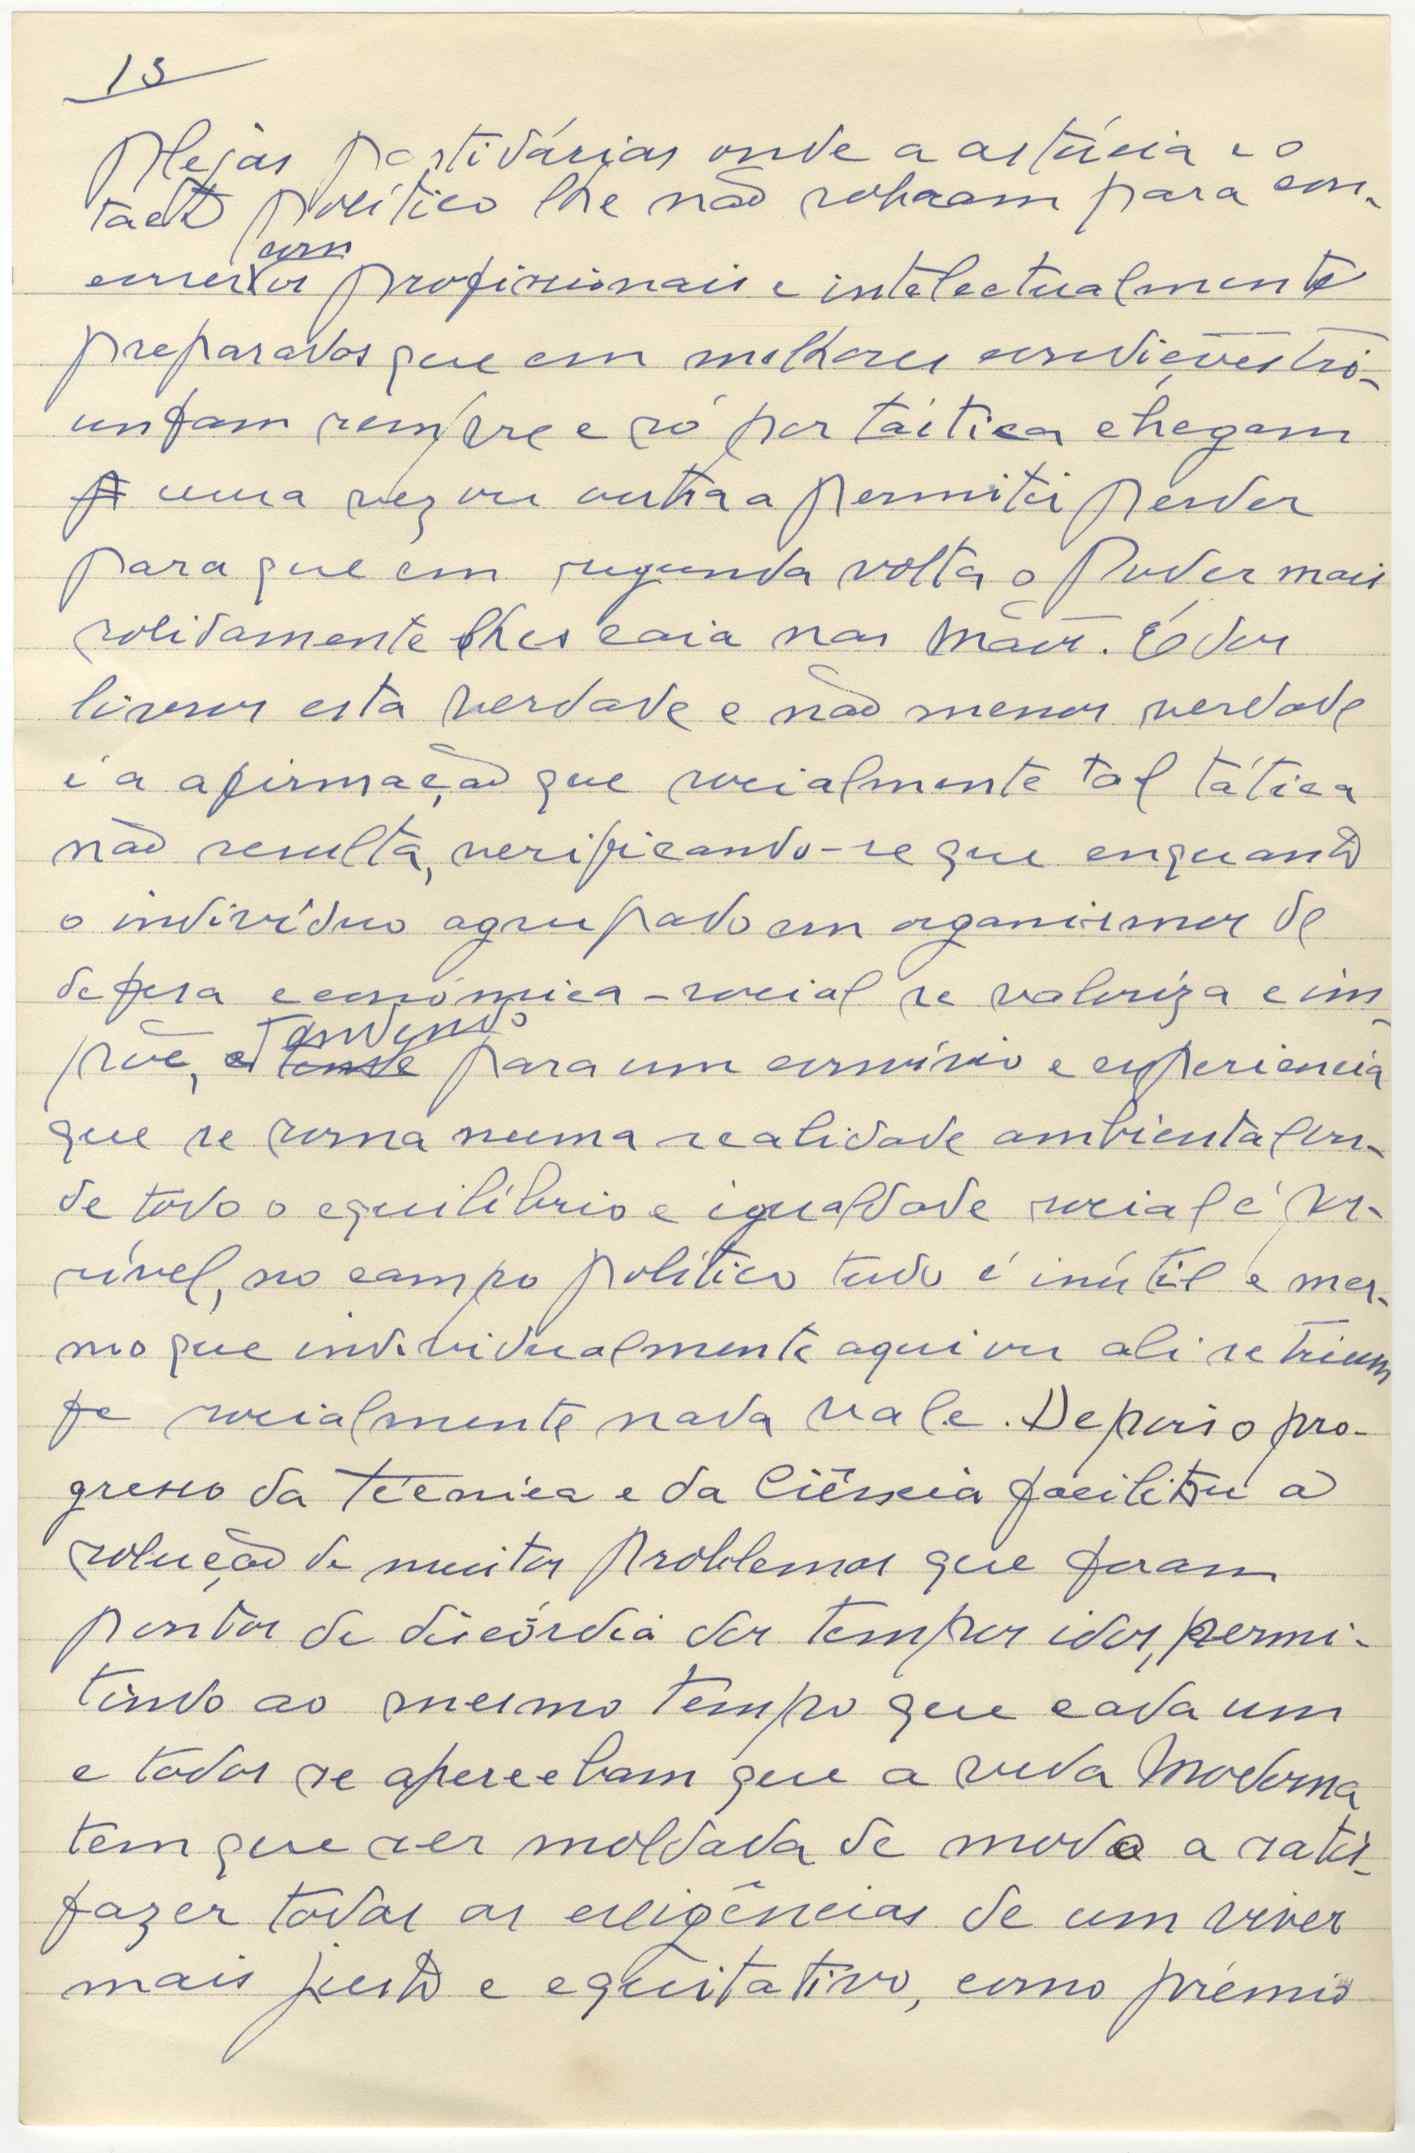 13
plejas partidárias onde a astúcia e o
tacto político lhe não sobram para con-
correr com os profissionais e intelectualmente
preparados que em melhores condições tri-
unfam sempre e só por táitica chegam
uma vez ou outra a permitir perder
para que em segunda volta o Poder mais
solidamente lhes caia nas mãos. É dos
livros esta verdade e não menos verdade
é a afirmação que socialmente tal tática
não resulta, verificando-se que enquanto
o indivíduo agrupado em organismos de
defesa económica-social se valoriza e im-
põe, tendendo para um convívio e experiencia
que se torna numa realidade ambiental on-
de todo o equilíbrio e igualdade social é pos-
sível, no campo político tudo é inútil e mes-
mo que individualmente aqui ou ali se trium
fe socialmente nada vale. Depois o pro-
gresso da técnica e da Ciência facilitou a
solução de muitos problemas que foram
pontos de discórdia dos tempos idos, permi-
tindo ao mesmo tempo que cada um
e todos se apercebam que a vida Moderna
tem que ser moldada de modo a satis-
fazer todas as exigências de um viver
mais justo e equitativo, como prémio